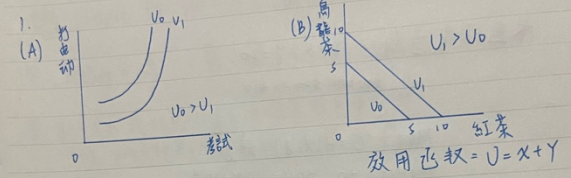 1.
(A)
打電動
U₀ U₁
U₀ > U₁
0
考試
(B)
烏龍茶
10
5
U₁ > U₀
U₁
U₀
0
5 10
紅茶
效用函数 = U = X + Y